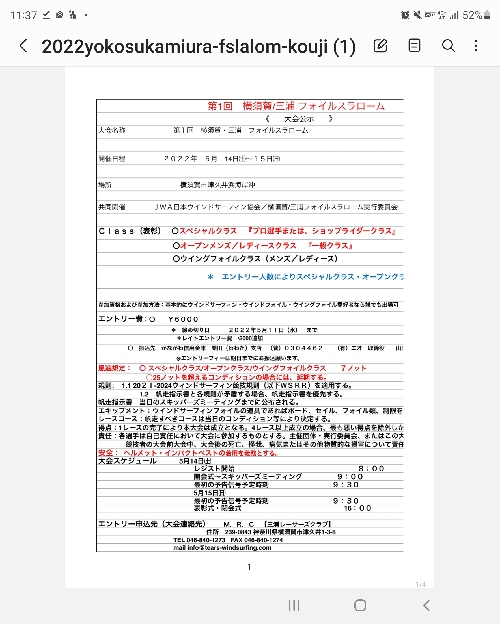 11:37
52%
2022yokosukamiura-fslalom-kouji (1)
第1回 横須賀/三浦 フォイルスラローム
《 大会公示 》
大会名称 第1回 横須賀・三浦 フォイルスラローム
開催日程 2022年 5月 14日㈯～15日㈰
場所 横須賀市津久井浜海岸沖
共同開催 JWA日本ウインドサーフィン協会／横須賀/三浦フォイルスラローム実行委員会
Class（表彰） 〇スペシャルクラス 『プロ選手または、ショップライダークラス』
〇オープンメンズ／レディースクラス 『一般クラス』
〇ウイングフォイルクラス（メンズ／レディース）
＊ エントリー人数によりスペシャルクラス・オープンクラ
参加資格および参加方法：基本的にウインドサーフィン・ウインドフォイル・ウイングフォイル愛好者なら誰でも出場可
エントリー費：〇 ￥6000
＊ 締め切り日 2022年5月11日（水） まで
＊レイトエントリー費 ¥2000追加
※エントリーフィーは期日までにお振込願います。
風速規定： 〇 スペシャルクラス/オープンクラス/ウイングフォイルクラス 7ノット
〇25ノットを超えるコンディションの場合には、延期する。
規則： 1.1 2021-2024ウインドサーフィン競技規則（以下WSRR）を適用する。
1.2 帆走指示書と各規則が矛盾する場合、帆走指示書を優先する。
帆走指示書 当日のスキッパーズミーティングまでに公布される。
エキップメント：ウインドサーフィンフォイルの道具であればボード、セイル、フォイル類、制限を
レースコース：帆走すべきコースは当日のコンディション等により決定する。
得点：1レースの完了により本大会は成立となる。4レース以上成立の場合、最も悪い得点を除外した
責任：各選手は自己責任において大会に参加するものとする。主催団体・実行委員会、またはこの大
競技者の大会前大会中、大会後の死亡、怪我、病気またはその他物質的な損害について責任
安全： ヘルメット・インパクトベストの着用を義務とする。
大会スケジュール 5月14日㈯
レジスト開始 8：00
開会式～スキッパーズミーティング 9：00
最初の予告信号予定時刻 9：30
5月15日㈰
最初の予告信号予定時刻 9：30
表彰式・閉会式 16：00
エントリー申込先（大会連絡先） M．R．C 【三浦レーサーズクラブ】
住所 239-0843 神奈川県横須賀市津久井1-3-8
TEL 046-840-1273 FAX 046-840-1274
mail info@tears-windsurfing.com
1
1/4